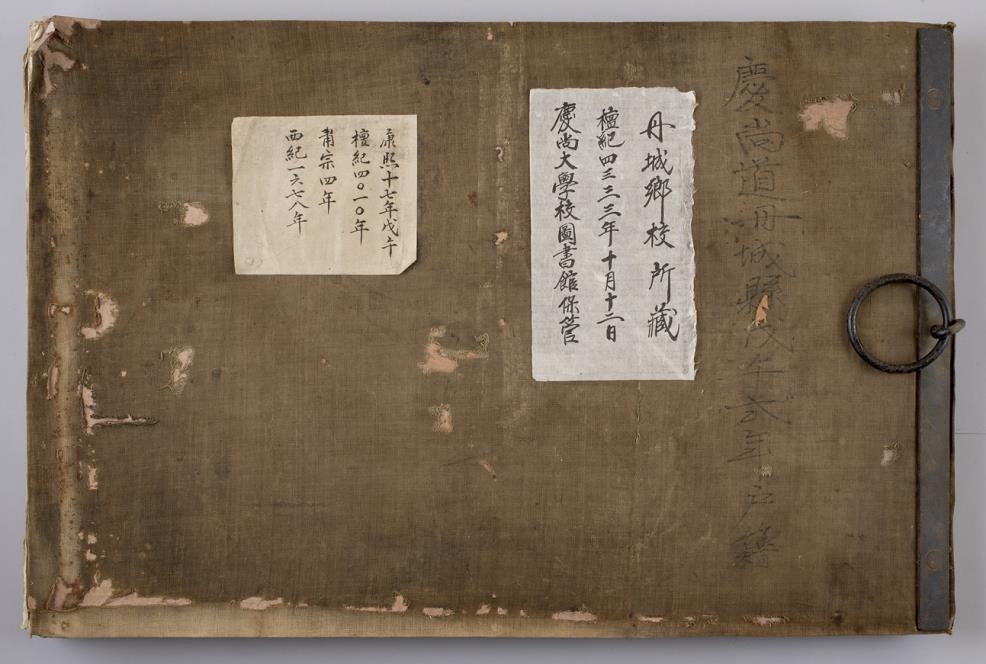 慶尚道丹城縣戊午式年戶籍
丹城鄉校所藏
檀紀四三三三年十月十二日
慶尚大學校圖書館保管
康熙十七年戊午
檀紀四〇一〇年
肅宗四年
西紀一六七八年